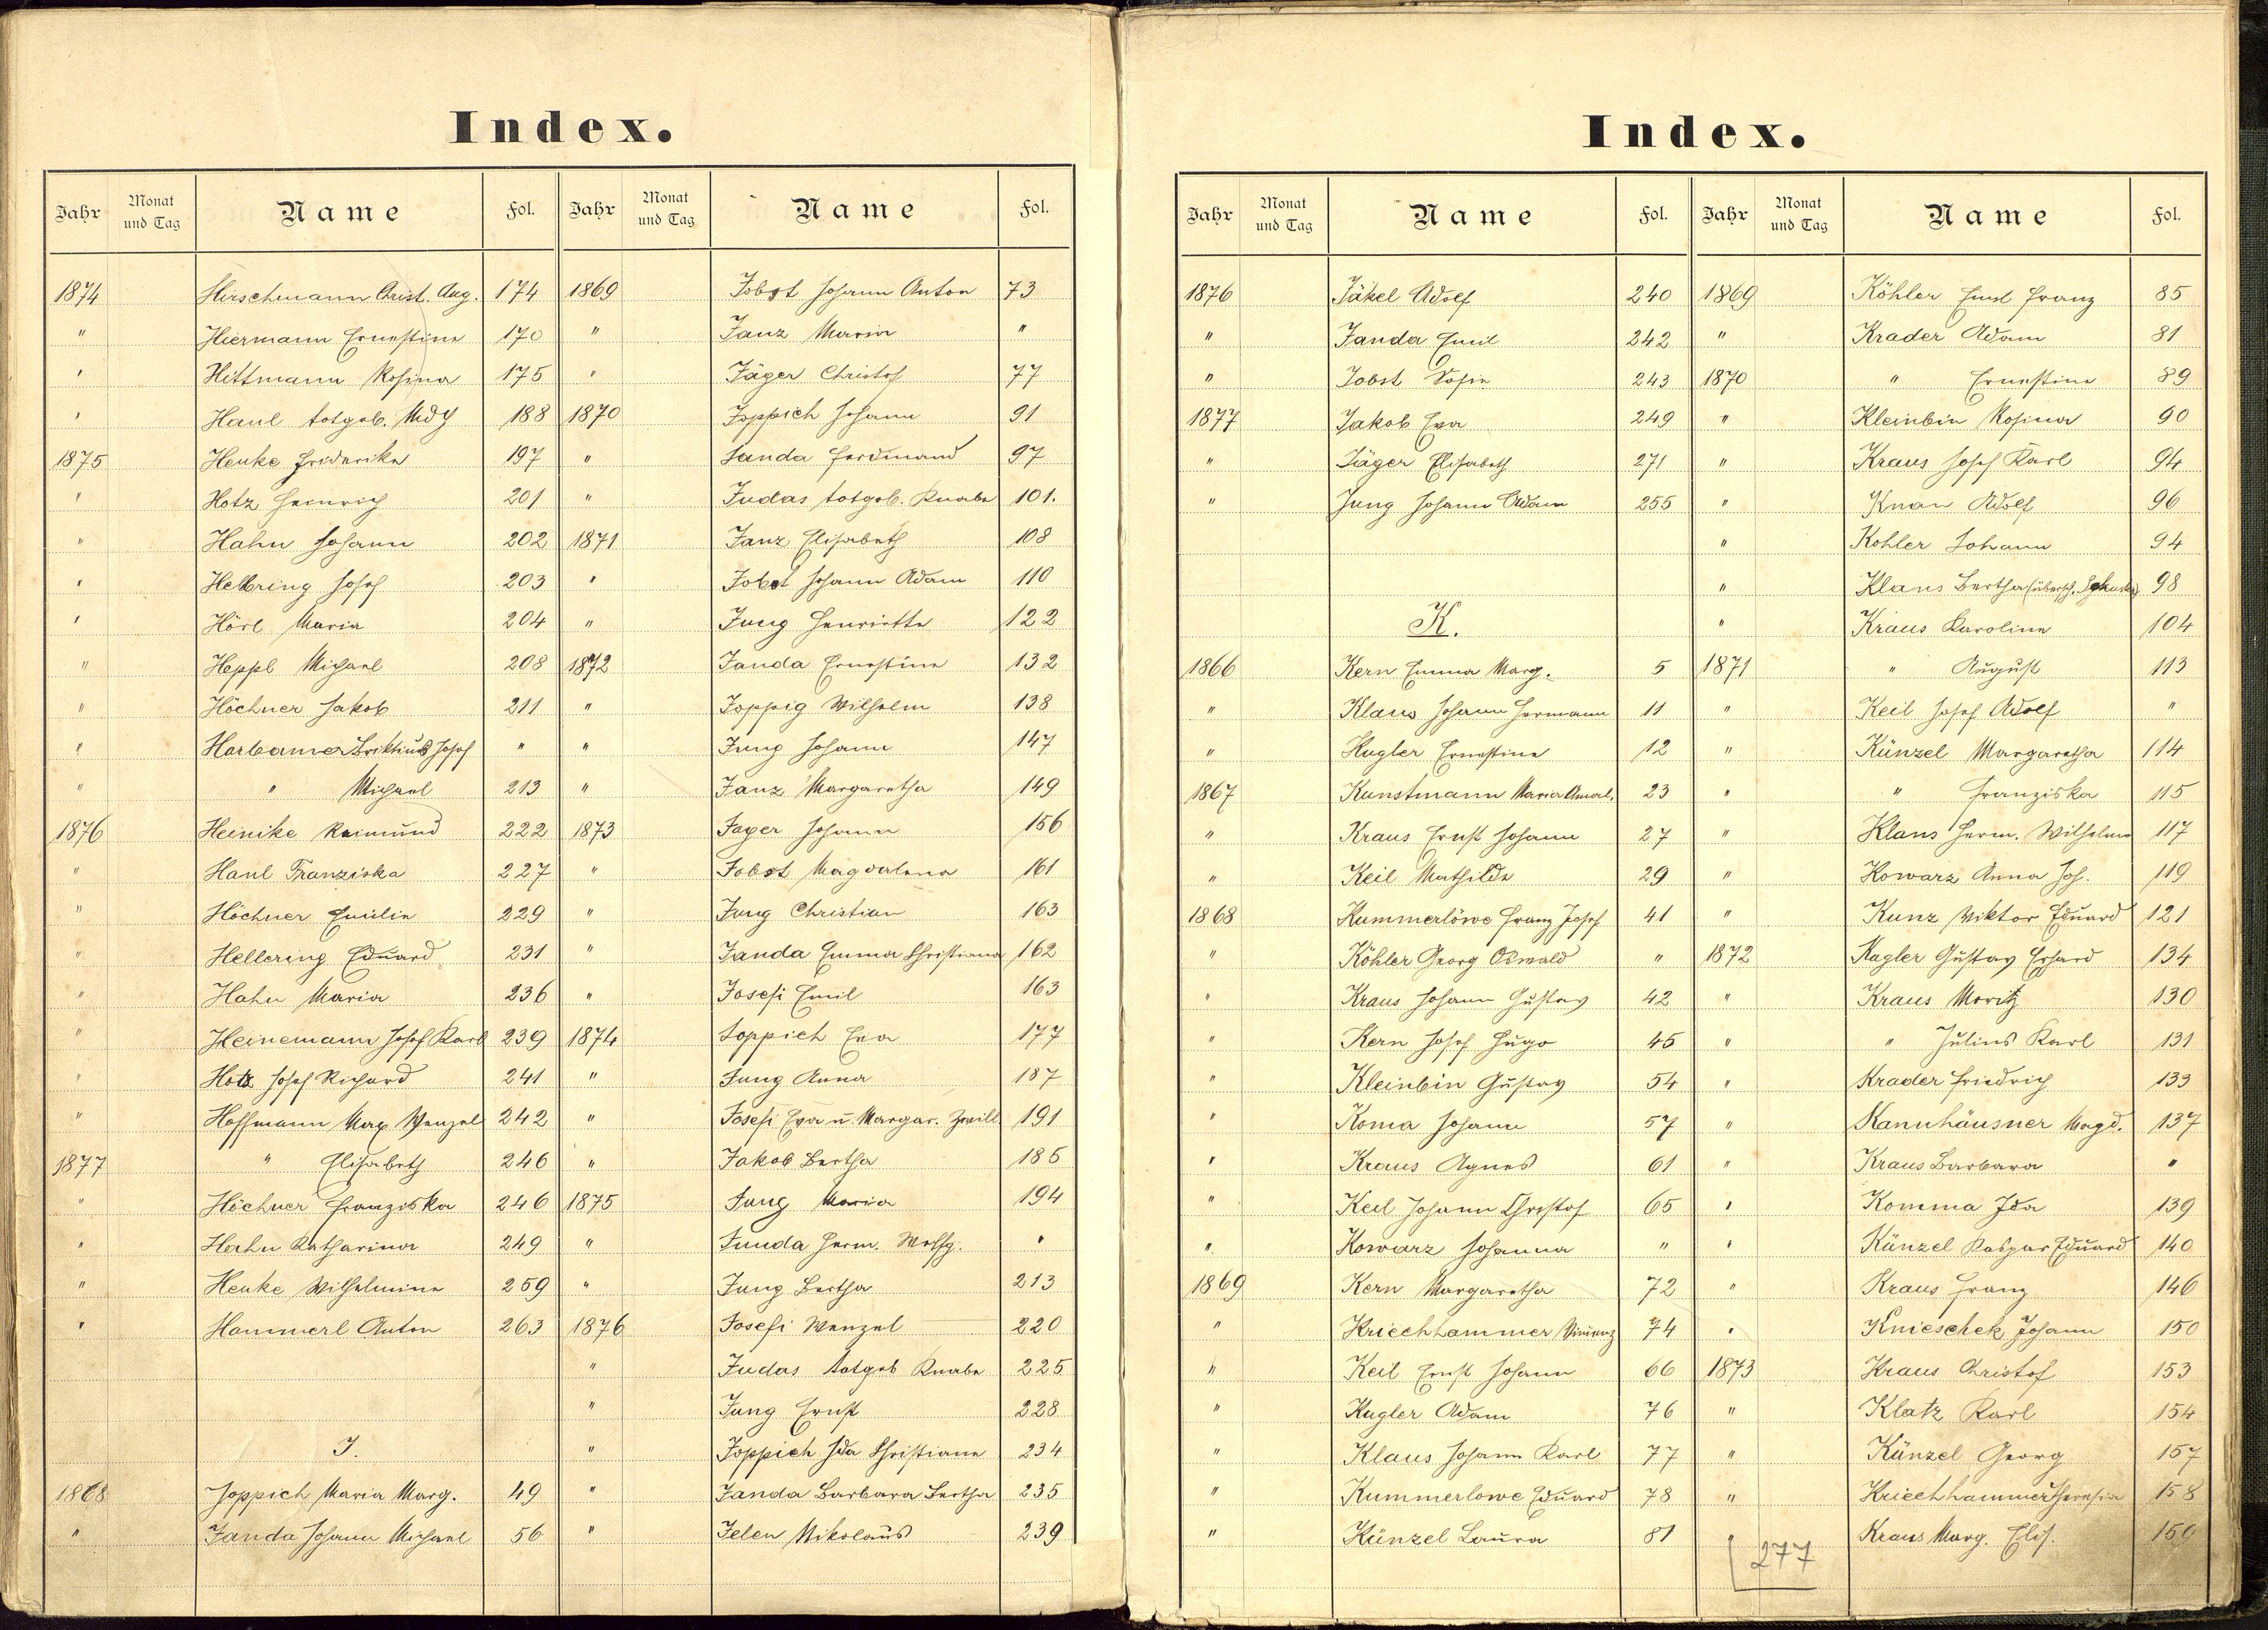 Index.
Jahr Monat und Tag Name Fol. Jahr Monat und Tag Name Fol.
1874 Hirschmann Christ. Aug. 174
" Hiermann Ernestine 170
" Hittmann Rosina 175
" Haul totgeb. Mdch 188
1875 Henke Friderike 197
" Hotz Heinrich 201
" Hahn Johann 202
" Helbring Josef 203
" Hörl Maria 204
" Heppl Michael 208
" Höchner Jakob 211
" Harbamer Briktius Josef "
" " Michael 213
1876 Heinike Raimund 222
" Hanl Franziska 227
" Höchner Emilie 229
" Hellering Eduard 231
" Hahn Maria 236
" Heinemann Josef Karl 239
" Hotz Josef Richard 241
" Hoffmann Max Wenzel 242
1877 " Elisabeth 246
" Höchner Franziska 246
" Hahn Katharina 249
" Henke Wilhelmine 259
" Hammerl Anton 263
J.
1868 Joppich Maria Marg. 49
" Janda Johann Michael 56
1869 Jobst Johann Anton 73
" Janz Maria "
" Jäger Christof 77
1870 Joppich Johann 91
" Janda Ferdinand 97
" Judas totgeb. Knabe 101.
1871 Janz Elisabeth 108
" Jobst Johann Adam 110
" Jung Henriette 122
1872 Janda Ernestine 132
" Joppig Wilhelm 138
" Jung Johann 147
" Janz Margaretha 149
1873 Jager Johann 156
" Jobst Magdalena 161
" Jung Christian 163
" Janda Emma Christiana 162
" Josefi Emil 163
1874 Joppich Eva 177
" Jung Anna 187
" Josefi Eva u. Margar. Zwill. 191
" Jakob Bertha 186
1875 Jung Maria 194
" Janda Herm. Wolfg. "
" Jung Bertha 213
1876 Josefi Wenzel 220
" Judas totgeb Knabe 225
" Jung Ernst 228
" Joppich Ida Christiane 234
" Janda Barbara Bertha 235
" Jelen Nikolaus 239
Index.
Jahr Monat und Tag Name Fol. Jahr Monat und Tag Name Fol.
1876 Jäkel Adolf 240
" Janda Emil 242
" Jobst Sofie 243
1877 Jakob Eva 249
" Jäger Elisabeth 271
" Jung Johann Adam 255
K.
1866 Kern Emma Marg. 5
" Klaus Johann Hermann 11
" Kugler Ernestine 12
1867 Kunstmann Maria Amal. 23
" Kraus Ernst Johann 27
" Keil Mathilde 29
1868 Kummerlöwe Franz Josef 41
" Köhler Georg Oswald "
" Kraus Johann Gustav 42
" Kern Josef Hugo 45
" Kleinbin Gustav 54
" Koma Johann 57
" Kraus Agnes 61
" Keil Johann Christof 65
" Kowarz Johanna "
1869 Kern Margaretha 72
" Kriechhammer Vinzenz 74
" Keil Ernst Johann 66
" Kugler Adam 76
" Klaus Johann Karl 77
" Kummerlowe Eduard 78
" Künzel Laura 81
1869 Köhler Emil Franz 85
" Krader Adam 81
1870 " Ernestine 89
" Kleinbin Rosina 90
" Kraus Josef Karl 94
" Knan Adolf 96
" Kohler Johann 94
" Klaus Bertha 98
" Kraus Karoline 104
1871 " August 113
" Keil Josef Adolf "
" Künzel Margaretha 114
" " Franziska 115
" Klaus Herm. Wilhelm 117
" Kowarz Anna Joh. 119
" Kunz Viktor Eduard 121
1872 Kugler Gustav Erhard 134
" Kraus Moritz 130
" " Julius Karl 131
" Krader Friedrich 133
" Kannhäusner Magd. 137
" Kraus Barbara "
" Komma Ida 139
" Künzel Kaspar Eduard 140
" Kraus Franz 146
" Knieschek Johann 150
1873 Kraus Christof 153
" Klatz Karl 154
" Künzel Georg 157
" Kriechhammer Theresia 158
" Kraus Marg. Elis.
277